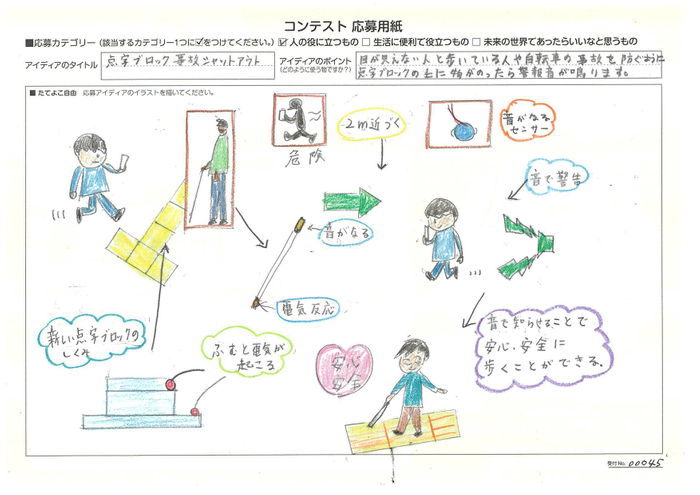 コンテスト 応募用紙
■応募カテゴリー (該当するカテゴリー1つに✓をつけてください。) ☑ 人の役に立つもの □ 生活に便利で役立つもの □ 未来の世界であったらいいなと思うもの
アイディアのタイトル
点字ブロック事故シャットアウト
アイディアのポイント
(どのように使う物ですか?)
目が見えない人と歩いている人や自転車の事故を防ぐために
点字ブロックの上に物がのったら警報音が鳴ります。
■ たてよこ自由 応募アイディアのイラストを描いてください。
危険
2m近づく
音がなる
センサー
音で警告
音がなる
電気反応
新しい点字ブロックの
しくみ
ふむと電気が
起こる
安心
安全
音で知らせることで
安心・安全に
歩くことができる。
受付No. 00045